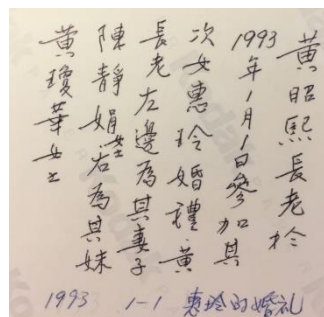 黃昭熙長老於
1993年1月1日參加其
次女惠玲婚禮．黃
長老左邊為其妻子
陳靜娟女士右為其妹
黃瓊華女士
1993 1-1 惠玲的婚礼